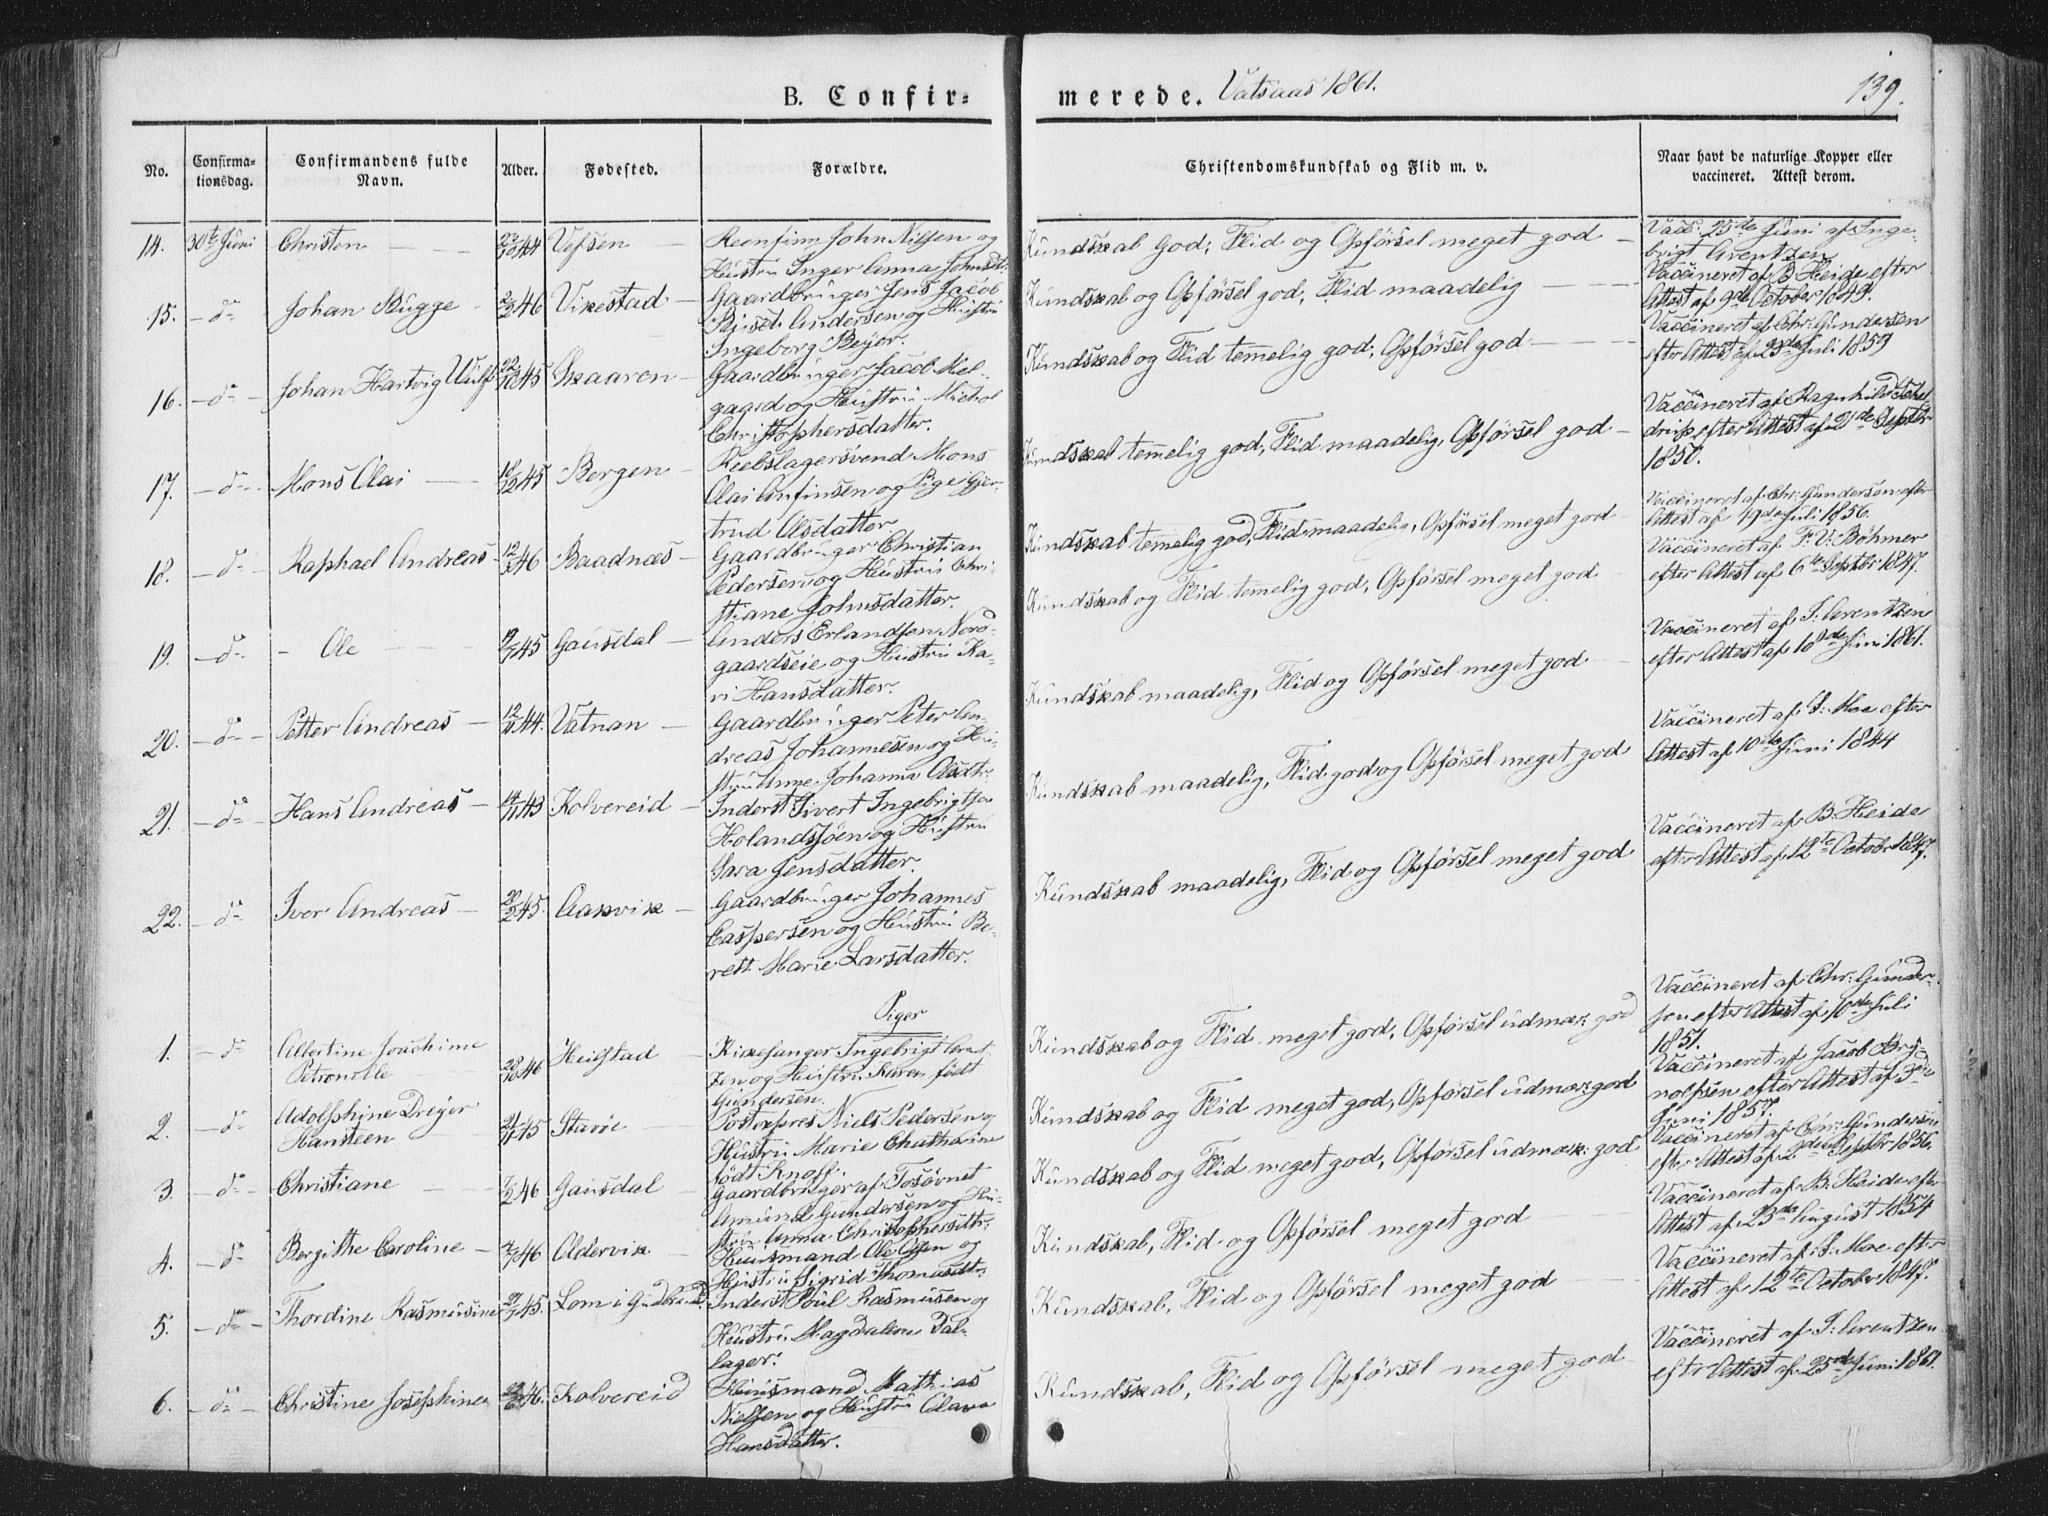 B. Confir-
merede. Vatsaas 1861.
139.
No.
Confirma-
tionsdag.
Confirmandens fulde
Navn.
Alder.
Fødested.
Forældre.
Christendomskundskab og Flid m. v.
Naar havt de naturlige Kopper eller
vaccineret. Attest derom.
14. 30te Juni Christen 44 Vefsen
Reenfinn John Nilsen og
Hustru Inger Anna Johnsd.
Kundskab God; Flid og Opførsel meget god
Vacc. 25de Juni af Inge-
brigt Arentzen
15. - do - Johan Bugge 46 Vikestad
Gaardbruger Jens Jacob
Andersen og Hustru
Ingeborg Beijer.
Kundskab og Opførsel god, Flid maadelig
Vaccineret af B. Heide efter
Attest af 9de October 1849.
16. - do - Johan Hartvig 45 Skaaren
Gaardbruger Jacob Mel-
gaard og Hustru Michol
Christophersdatter.
Kundskab og Flid temelig god, Opførsel god
Vaccineret af Chr. Gundersen
efter Attest af Juli 1859
17. - do - Mons Olai 18/12 45 Bergen
Reebslagersvend Mons
Olai Anfinsen og Pige Gjer-
trud Olsdatter
Kundskab temelig god, Flid maadelig, Opførsel god
Vaccineret af Ragnhild
efter Attest af 21de Septbr
1850.
18. - do - Raphael Andreas 46 Baadnæs
Gaardbruger Christian
Pedersen og Hustru Chri-
stiane Johnsdatter.
Kundskab temelig god, Flid maadelig, Opførsel meget god
Vaccineret af Chr. Gundersen efter
Attest af 19de Juli 1856.
19. - do - Ole 45 Gausdal
Anders Erlandsen Nord-
gaardseie og Hustru Ka-
ri Hansdatter.
Kundskab og Flid temelig god, Opførsel meget god
Vaccineret af F. V. Bøhmer
efter Attest af 6te Septbr 1847.
20. - do - Petter Andreas 44. Vatnan
Gaardbruger Peter An-
dreas Johannesen og Hu-
stru Anne Johanna Olsdtr.
Kundskab maadelig, Flid og Opførsel meget god
Vaccineret af I. Arentzen
efter Attest af 18de Juni 1861.
21. - do - Hans Andreas 43 Kolvereid
Inderst Sivert Ingebrigtsen
Holandssøen og Hustru
Sara Jensdatter.
Kundskab maadelig, Flid god og Opførsel meget god
Vaccineret af S. Moe efter
Attest af 10de Juni 1844
22. - do - Iver Andreas 45. Aakvik
Gaardbruger Johannes
Caspersen og Hustru Be-
rett Marie Larsdatter.
Kundskab maadelig, Flid og Opførsel meget god
Vaccineret af B. Heide
efter Attest af 12te Octobr 1847.
Piger
1. - do - Albertine Joachime
Petronelle 28/10 46 Heilstad
Kirkesanger Ingebrigt Arent-
zen og Hustru Karen født
Gundersen.
Kundskab og Flid meget god, Opførsel udmær: god
Vaccineret af Chr. Gunder-
sen efter Attest af 10de Juli
1851.
2. - do - Adolphine Dreyer
Hansteen 45 Stavøe
Postexpres Niels Pedersen og
Hustru Marie Chatharine
født Knoff.
Kundskab og Flid meget god, Opførsel udmær: god
Vaccineret af Jacob Bry-
nolfsen efter Attest af 3die
Juni 1857.
3. - do - Christiane 46 Gausdal
Gaardbruger af Tosøvnet
Amund Gundersen og Hu-
stru Anna Christophersdtr.
Kundskab og Flid meget god, Opførsel udmær: god
Vaccineret af Chr. Gundersen
efter Attest af 2den Septbr 1856.
4. - do - Bergithe Caroline 46 Aldervik
Huusmand Ole Olsen og
Hustru Sigrid Thomasdtr.
Kundskab, Flid og Opførsel meget god
Vaccineret af B. Heide efter
Attest af 23de August 1854
5. - do - Thordine Rasmusine 45. Lom i Gudbrand.
Inderst Poul Rasmusen og
Hustru Magdalena Dal-
lager.
Kundskab, Flid og Opførsel meget god
Vaccineret af S. Moe efter
Attest af 12te October 1847.
6. - do - Christine Josephine 46. Kolvereid
Huusmand Mathias
Nielsen og Hustru Olava
Hansdatter.
Kundskab, Flid og Opførsel meget god
Vaccineret af I. Arentzen
efter Attest af 25de Juni 1861.